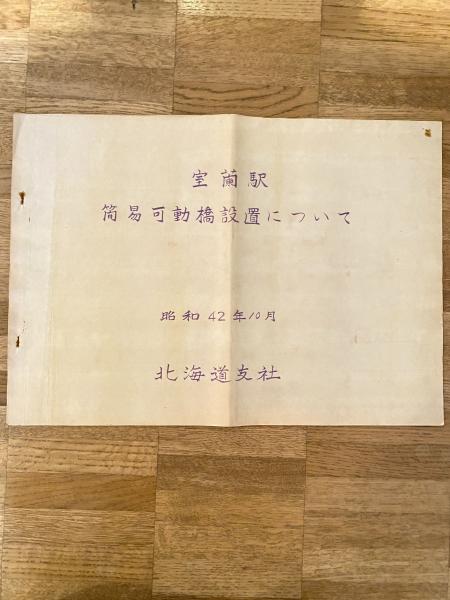 室蘭駅
簡易可動橋設置について
昭和42年10月
北海道支社